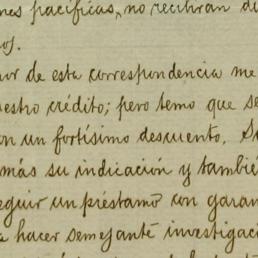 nes pacíficas, no recibirán di
os.
or de esta correspondencia me
estro crédito; pero temo que se
on un fortísimo descuento. S
más su indicación y tambié
eguir un préstamo con garan
a hacer semejante investigaci